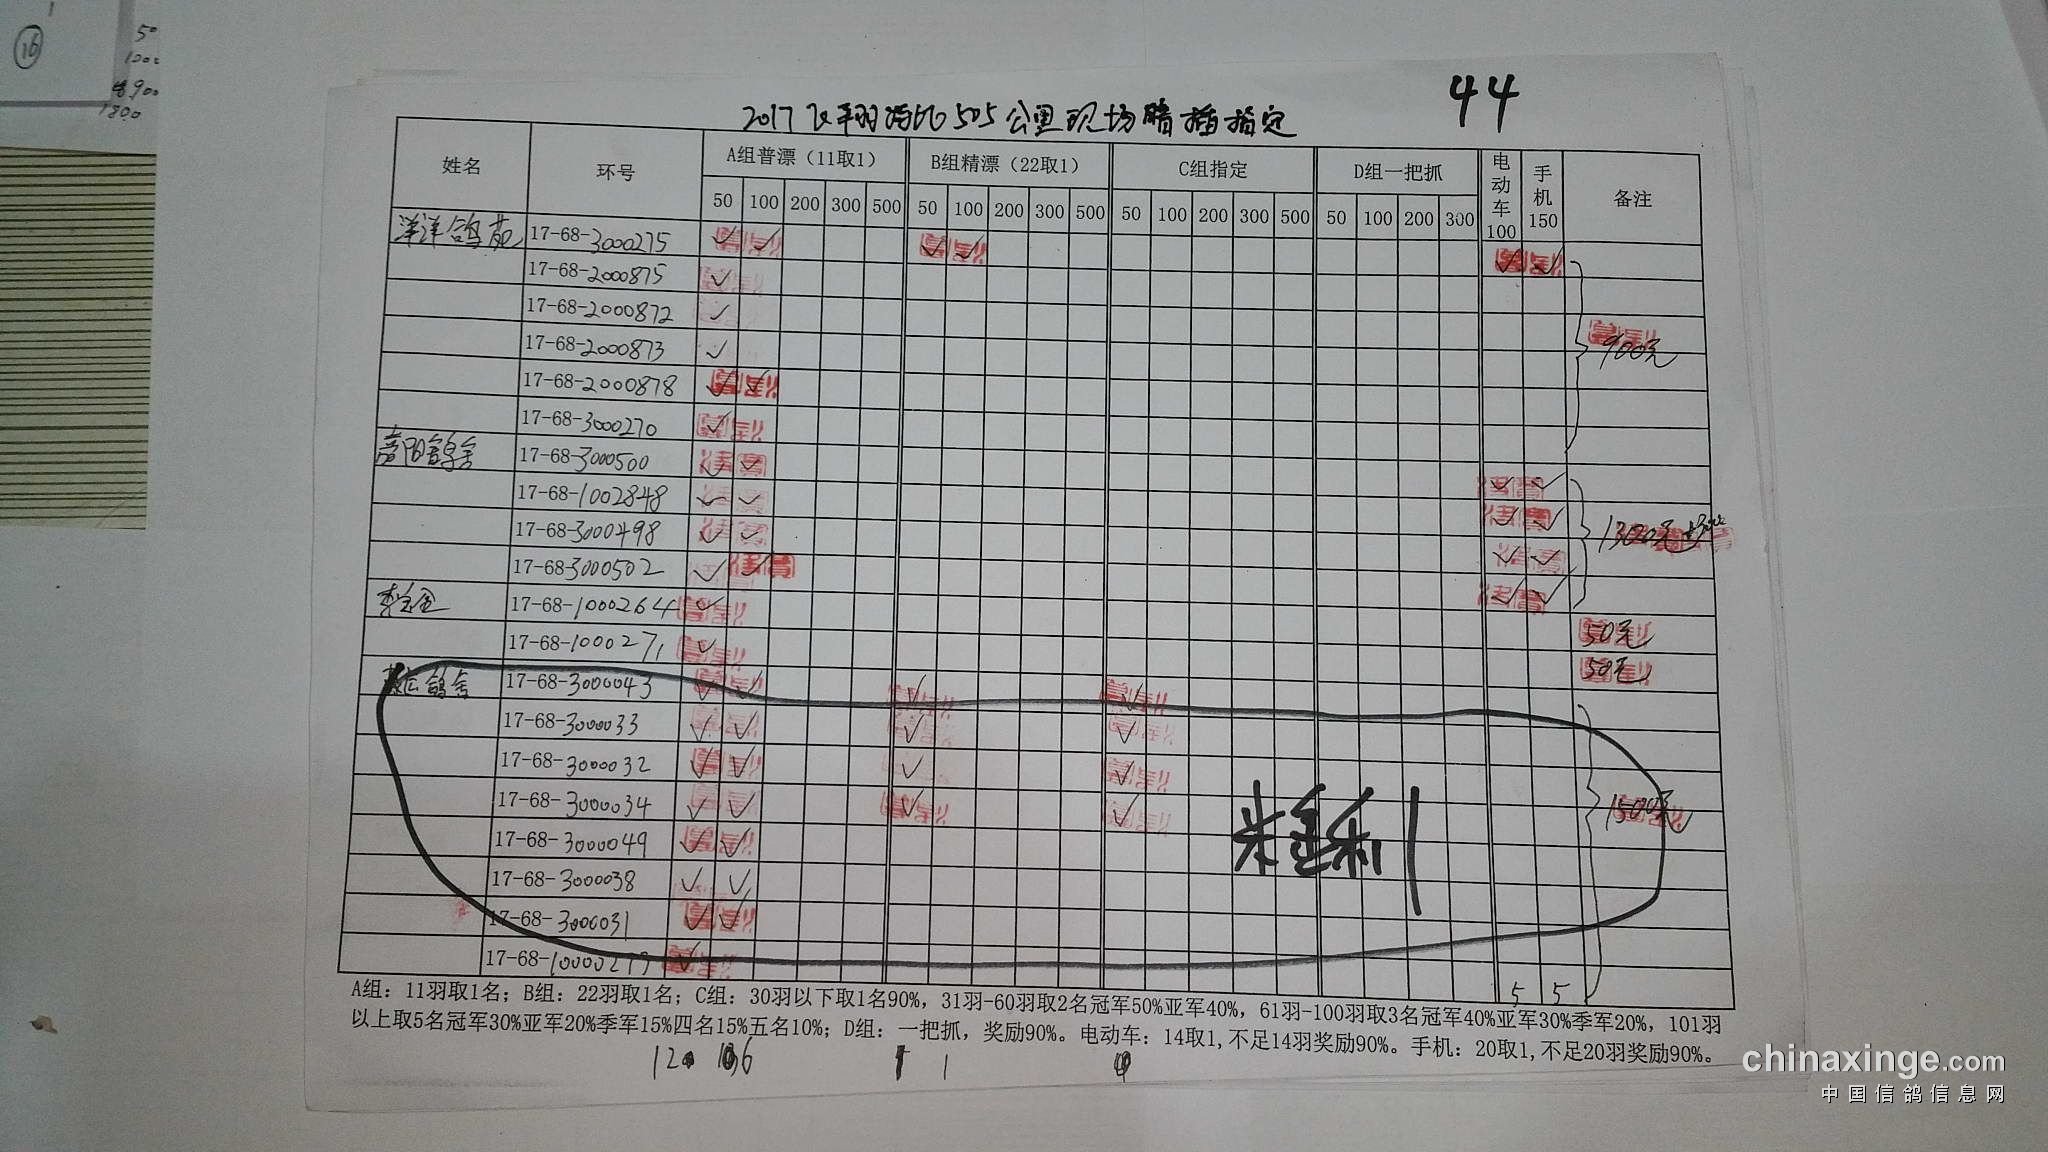 16
50
1000
44
2017飞翔鸽比505公里现场暗插指定
姓名 环号 A组普漂（11取1） B组精漂（22取1） C组指定 D组一把抓 电动车100 手机150 备注
50 100 200 300 500 50 100 200 300 500 50 100 200 300 500 50 100 200 300
洋洋鸽苑 17-68-3000275 ✓ ✓ ✓ ✓ ✓ ✓
17-68-2000875 ✓
17-68-2000872 ✓
17-68-2000873 ✓ 900元
17-68-2000878 ✓ ✓
17-68-3000270 ✓
鸽舍 17-68-3000500 ✓ ✓ ✓ ✓
17-68-1002848 ✓ ✓ ✓ ✓
17-68-3000498 ✓ ✓ ✓ ✓ 1300元
17-68-3000502 ✓ ✓ ✓ ✓
17-68-1000264 ✓ 50元
17-68-1000271 ✓ 50元
鸽舍 17-68-3000043 ✓ ✓ ✓ ✓
17-68-3000033 ✓ ✓ ✓ ✓
17-68-3000032 ✓ ✓ ✓ ✓
17-68-3000034 ✓ ✓ ✓ ✓ 1500元
17-68-3000049 ✓ ✓
17-68-3000038 ✓ ✓
17-68-3000031 ✓ ✓
17-68- ✓
5 5
A组：11羽取1名；B组：22羽取1名；C组：30羽以下取1名90%，31羽-60羽取2名冠军50%亚军40%，61羽-100羽取3名冠军40%亚军30%季军20%，101羽
以上取5名冠军30%亚军20%季军15%四名15%五名10%；D组：一把抓，奖励90%。电动车：14取1,不足14羽奖励90%。手机：20取1,不足20羽奖励90%。
chinaxinge.com
中国信鸽信息网